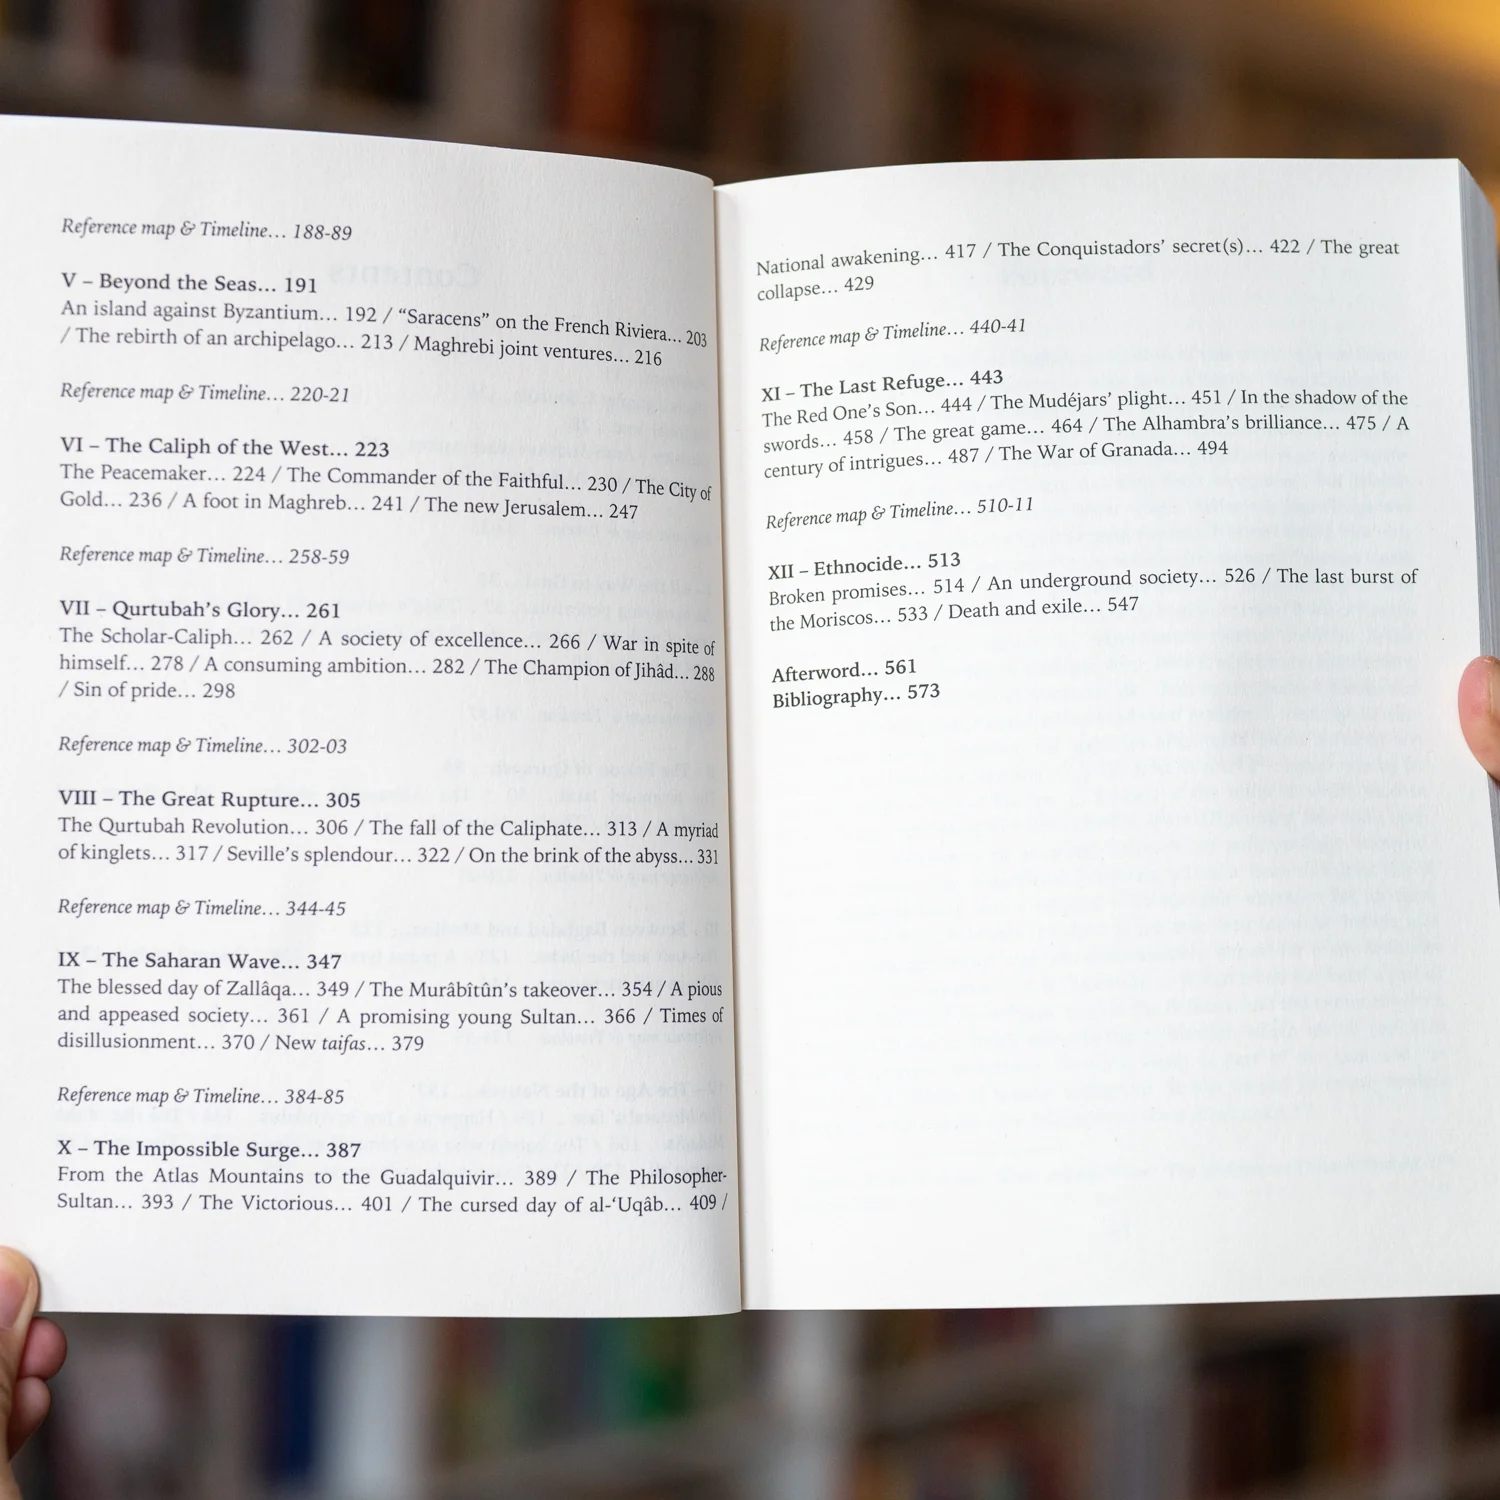 Reference map & Timeline… 188-89
V – Beyond the Seas… 191
An island against Byzantium… 192 / “Saracens” on the French Riviera… 203
/ The rebirth of an archipelago… 213 / Maghrebi joint ventures… 216
Reference map & Timeline… 220-21
VI – The Caliph of the West… 223
The Peacemaker… 224 / The Commander of the Faithful… 230 / The City of
Gold… 236 / A foot in Maghreb… 241 / The new Jerusalem… 247
Reference map & Timeline… 258-59
VII – Qurtubah’s Glory… 261
The Scholar-Caliph… 262 / A society of excellence… 266 / War in spite of
himself… 278 / A consuming ambition… 282 / The Champion of Jihâd… 288
/ Sin of pride… 298
Reference map & Timeline… 302-03
VIII – The Great Rupture… 305
The Qurtubah Revolution… 306 / The fall of the Caliphate… 313 / A myriad
of kinglets… 317 / Seville’s splendour… 322 / On the brink of the abyss… 331
Reference map & Timeline… 344-45
IX – The Saharan Wave… 347
The blessed day of Zallâqa… 349 / The Murâbîtûn’s takeover… 354 / A pious
and appeased society… 361 / A promising young Sultan… 366 / Times of
disillusionment… 370 / New taifas… 379
Reference map & Timeline… 384-85
X – The Impossible Surge… 387
From the Atlas Mountains to the Guadalquivir… 389 / The Philosopher-
Sultan… 393 / The Victorious… 401 / The cursed day of al-‘Uqâb… 409 /
National awakening… 417 / The Conquistadors’ secret(s)… 422 / The great
collapse… 429
Reference map & Timeline… 440-41
XI – The Last Refuge… 443
The Red One’s Son… 444 / The Mudéjars’ plight… 451 / In the shadow of the
swords… 458 / The great game… 464 / The Alhambra’s brilliance… 475 / A
century of intrigues… 487 / The War of Granada… 494
Reference map & Timeline… 510-11
XII – Ethnocide… 513
Broken promises… 514 / An underground society… 526 / The last burst of
the Moriscos… 533 / Death and exile… 547
Afterword… 561
Bibliography… 573